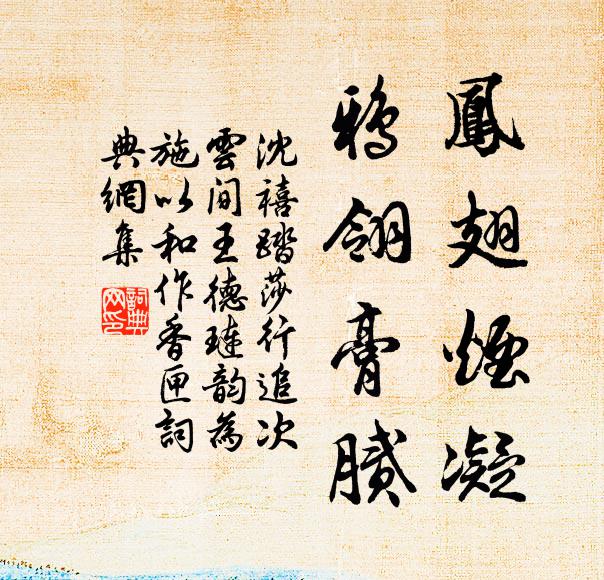 鳳翅煙凝
鴉翎膏膩
沈禧踏莎行追次
雲間王德璉韵為
施以和作香匣詞
典網集
詞典
网印